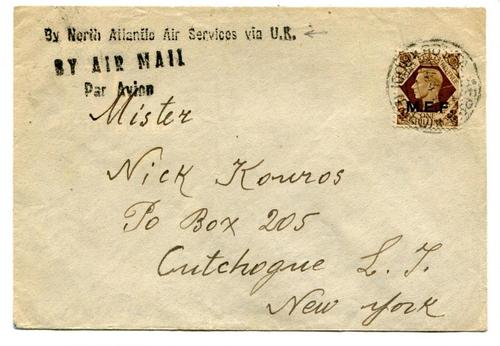 By North Atlantic Air Services via U.K.
BY AIR MAIL
Par Avion
M.E.F
Mister
Nick Kouros
Po Box 205
Cutchogue L. I.
New York